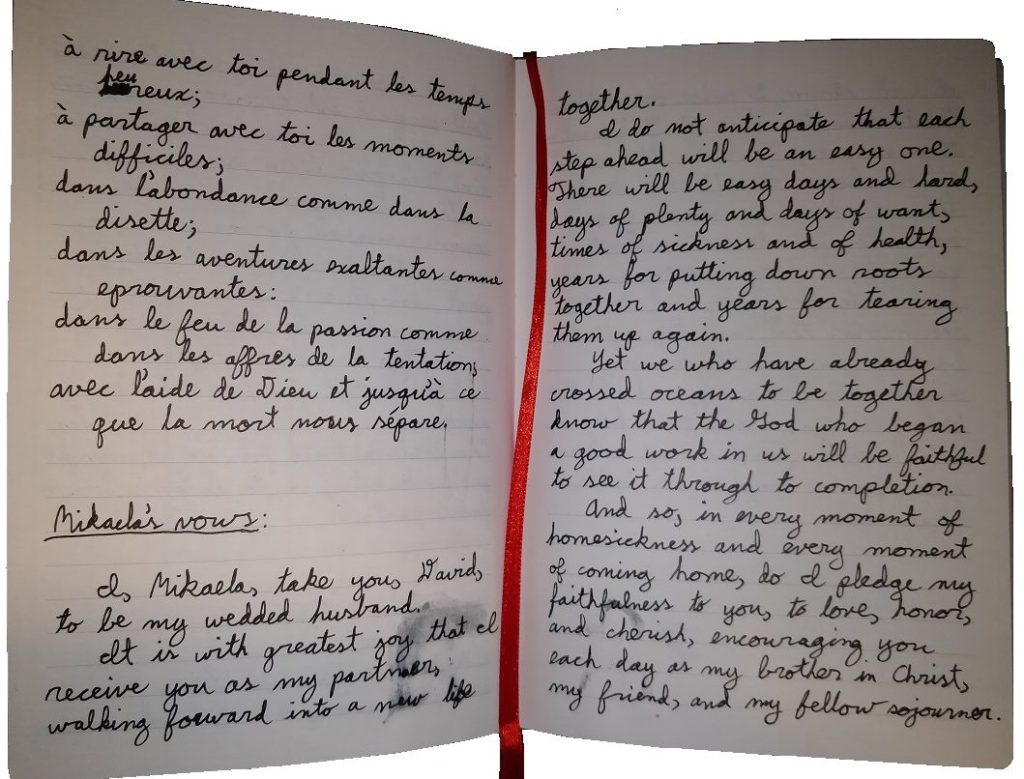 à rire avec toi pendant les temps
heureux;
à partager avec toi les moments
difficiles;
dans l'abondance comme dans la
disette;
dans les aventures exaltantes comme
eprouvantes:
dans le feu de la passion comme
dans les affres de la tentation,
avec l'aide de Dieu et jusqu'à ce
que la mort nous sépare.
Mikaela's vows:
I, Mikaela, take you, David,
to be my wedded husband.
It is with greatest joy that I
receive you as my partner,
walking forward into a new life
together.
I do not anticipate that each
step ahead will be an easy one.
There will be easy days and hard,
days of plenty and days of want,
times of sickness and of health,
years for putting down roots
together and years for tearing
them up again.
Yet we who have already
crossed oceans to be together
know that the God who began
a good work in us will be faithful
to see it through to completion.
And so, in every moment of
homesickness and every moment
of coming home, do I pledge my
faithfulness to you, to love, honor,
and cherish, encouraging you
each day as my brother in Christ,
my friend, and my fellow sojourner.